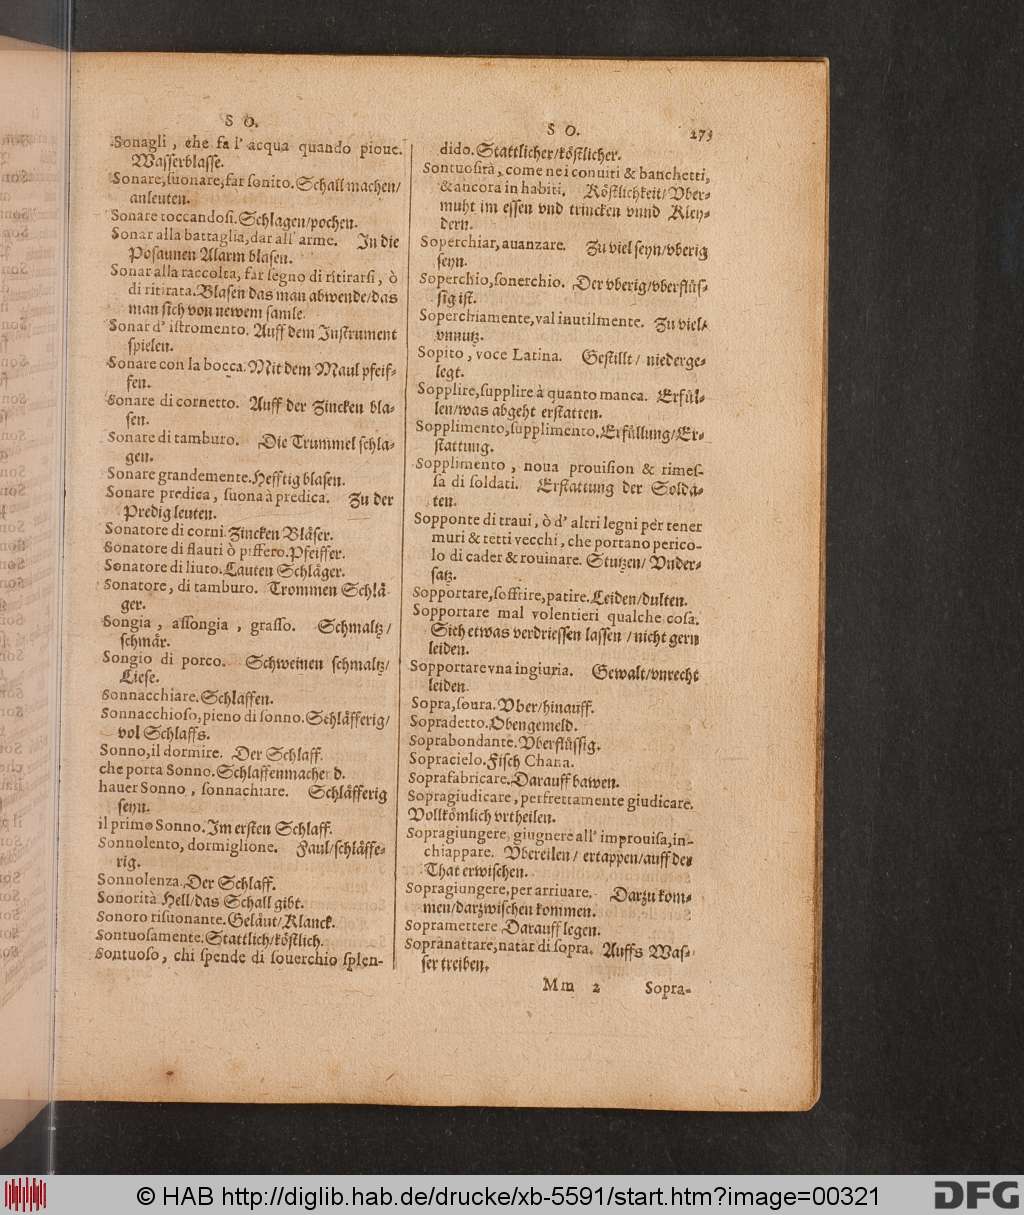 S O.
Sonagli, che fa l' acqua quando pioue.
Wasserblasse.
Sonare, suonare, far sonito. Schall machen/
anleuten.
Sonare toccandosi. Schlagen/pochen.
Sonar alla battaglia, dar all' arme. In die
Posaunen Alarm blasen.
Sonar alla raccolta, far segno di ritirarsi, ò
di ritirata. Blasen das man abwende/das
man sich von newem samle.
Sonar d' istromento. Auff dem Instrument
spielen.
Sonare con la bocca. Mit dem Maul pfeif-
fen.
Sonare di cornetto. Auff der Zincken bla-
sen.
Sonare di tamburo. Die Trummel schla-
gen.
Sonare grandemente. Hefftig blasen.
Sonare predica, suona à predica. Zu der
Predig leuten.
Sonatore di corni. Zincken Bläser.
Sonatore di flauti ò piffero. Pfeiffer.
Sonatore di liuto. Lauten Schläger.
Sonatore, di tamburo. Trommen Schlä
ger.
Songia, assongia, grasso. Schmaltz/
schmär.
Songio di porco. Schweinen schmaltz/
Liese.
Sonnacchiare. Schlaffen.
Sonnacchioso, pieno di sonno. Schläfferig/
vol Schlaffs.
Sonno, il dormire. Der Schlaff.
che porta Sonno. Schlaffenmachend.
hauer Sonno, sonnachiare. Schläfferig
seyn.
il primo Sonno. Im ersten Schlaff.
Sonnolento, dormiglione. Faul/schläffe-
rig.
Sonnolenza. Der Schlaff.
Sonorità Hell/das Schall gibt.
Sonoro risuonante. Geläut/Klanck.
Sontuosamente. Stattlich/köstlich.
Sontuoso, chi spende di souerchio splen-
S O. 275
dido. Stattlicher/köstlicher.
Sontuosità, come nei conuiti & banchetti,
& ancora in habiti. Köstlichkeit/Vber-
muht im essen vnd trincken vnnd Kley-
dern.
Soperchiar, auanzare. Zu viel seyn/vberig
seyn.
Soperchio, sonerchio. Der vberig/vberflüs-
sig ist.
Soperchiamente, val inutilmente. Zu viel/
vnnutz.
Sopito, voce Latina. Gestillt/ niederge-
legt.
Sopplire, supplire à quanto manca. Erfül-
len/was abgeht erstatten.
Sopplimento, supplimento. Erfüllung/Er-
stattung.
Sopplimento, noua prouision & rimes-
sa di soldati. Erstattung der Soldä-
ten.
Sopponte di traui, ò d' altri legni per tener
muri & tetti vecchi, che portano perico-
lo di cader & rouinare. Stutzen/ Vnder-
satz.
Sopportare, soffrire, patire. Leiden/dulten.
Sopportare mal volentieri qualche cosa.
Sich etwas verdriessen lassen/nicht gern
leiden.
Sopportare vna ingiuria. Gewalt/vnrecht
leiden.
Sopra, soura. Vber/hinauff.
Sopradetto. Obengemeld.
Soprabondante. Vberflüssig.
Sopracielo. Fisch Chana.
Soprafabricare. Darauff bawen.
Sopragiudicare, perfrettamente giudicare.
Vollkömlich vrtheilen.
Sopragiungere, giugnere all' improuisa, in-
chiappare. Vbereilen/ ertappen/auff der
That erwischen.
Sopragiungere, per arriuare. Darzu kom-
men/darzwischen kommen.
Sopramettere Darauff legen.
Sopranattare, natar di sopra. Auffs Was-
ser treiben.
Mm 2 Sopra-
© HAB http://diglib.hab.de/drucke/xb-5591/start.htm?image=00321
DFG